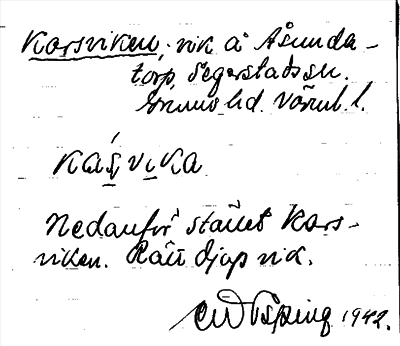 Korsviken, vik å Åsunda-
torp, Segerstads sn.
Grums hd. Värml. l.
Nedanför stället Kors-
viken. Rätt djup vik.
1942.